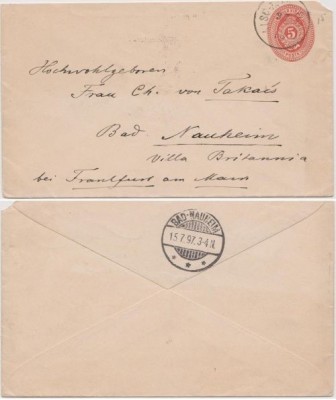 5
Hochwohlgeboren
Frau Ch. von Takács
Bad Nauheim
Villa Britannia
bei Frankfurt am Main
BAD-NAUHEIM
15.7.97.3-4N.